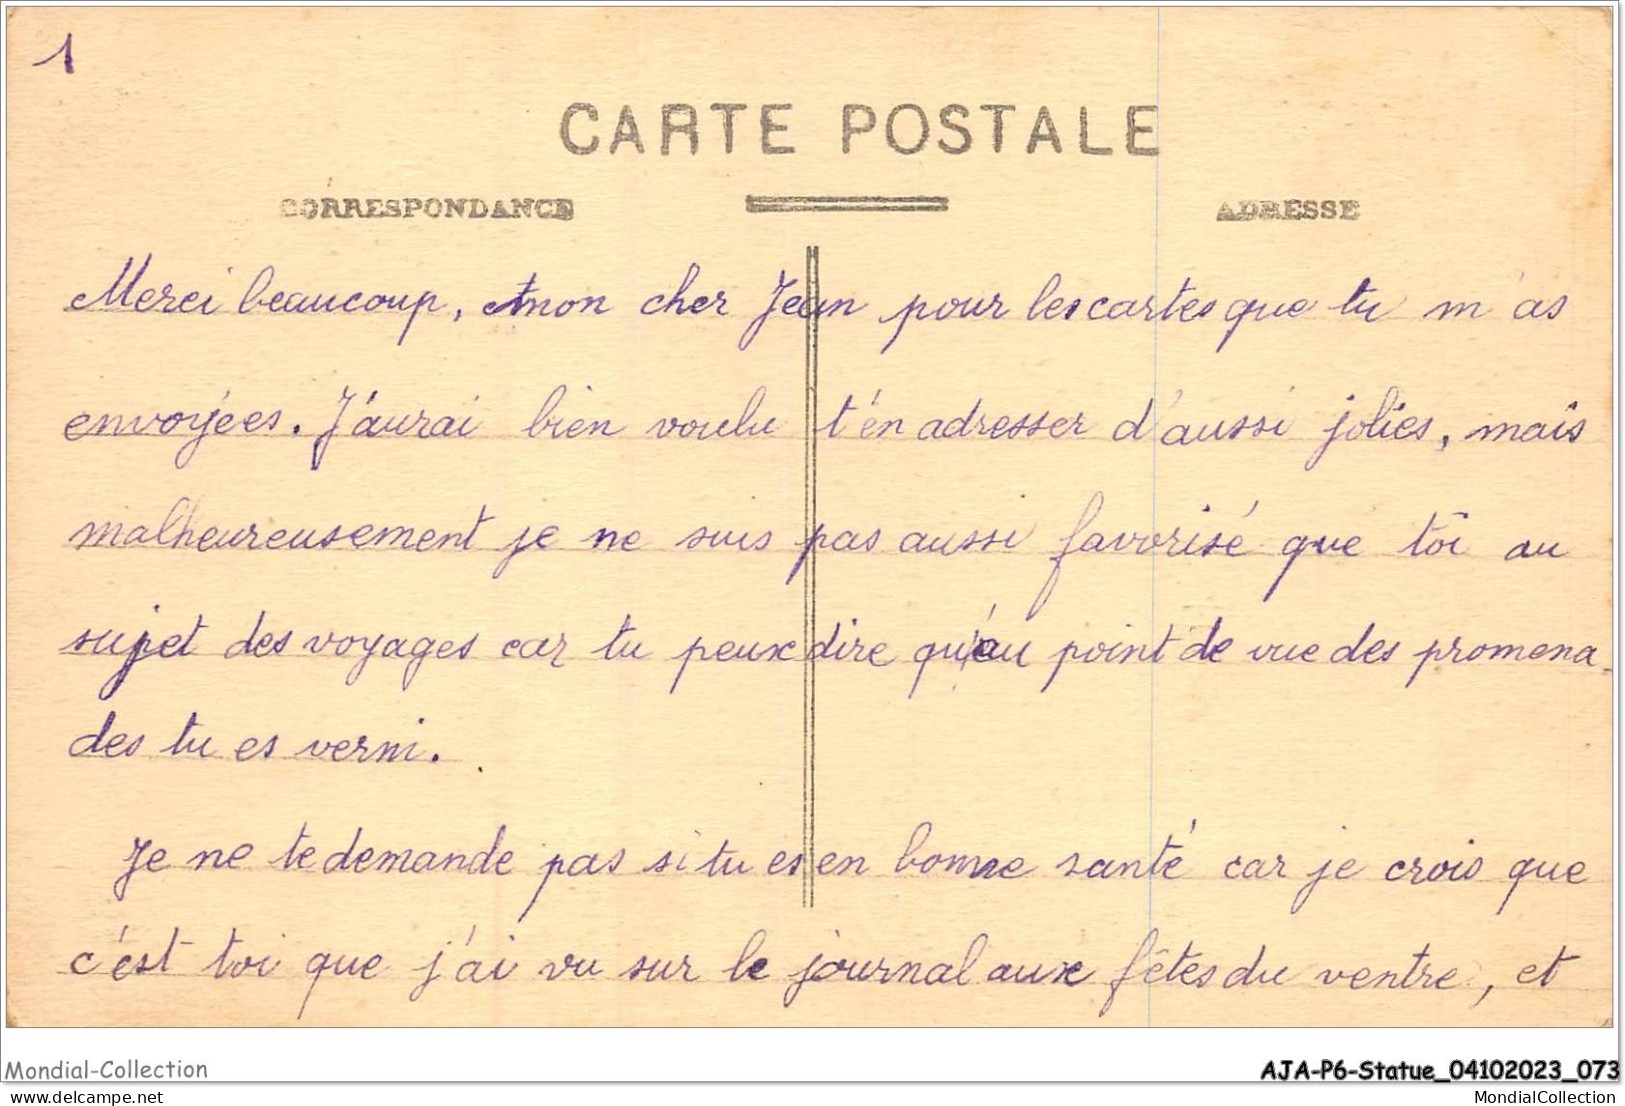 1
CARTE POSTALE
CORRESPONDANCE
ADRESSE
Merci beaucoup, mon cher Jean pour les cartes que tu m'as
envoyées. J'aurai bien voulu t'en adresser d'aussi jolies, mais
malheureusement je ne suis pas aussi favorisé que toi au
sujet des voyages car tu peux dire qu'au point de vue des promena
des tu es verni.
Je ne te demande pas si tu es en bonne santé car je crois que
c'est toi que j'ai vu sur le journal aux fêtes du ventre, et
Mondial-Collection
AJA-P6-Statue_04102023_073
MondialCollection
MondialCollection